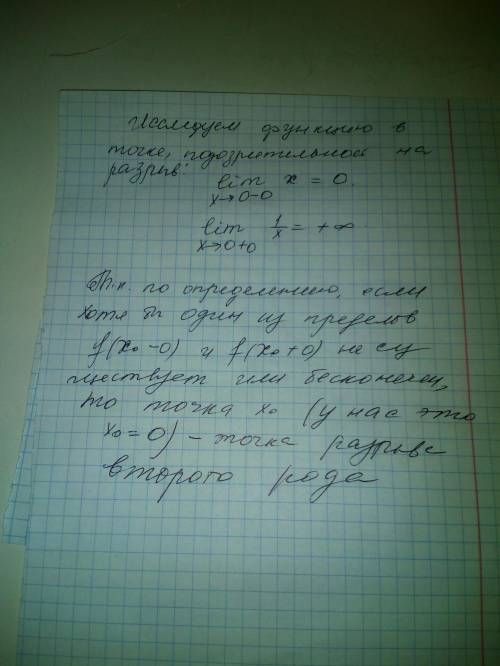 Исследуем функцию в
точке, подозрительной на
разрыв:
lim x = 0.
x→0-0
lim 1/x = +∞
x→0+0
Т.к. по определению, если
хотя бы один из пределов
f(x₀-0) и f(x₀+0) не су
ществует или бесконечен,
то точка x₀ (у нас это
x₀=0) - точка разрыва
второго рода